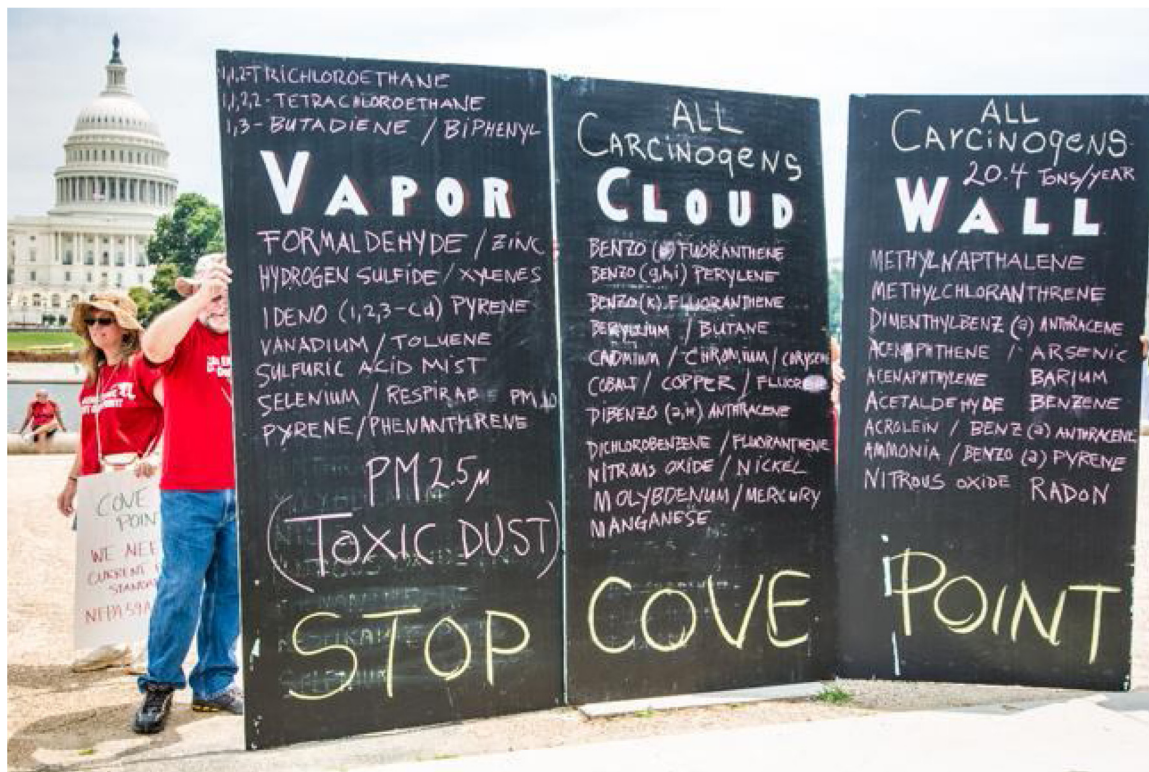 1,1,2-TRICHLOROETHANE
1,1,2,2-TETRACHLOROETHANE
1,3-BUTADIENE / BIPHENYL
VAPOR
FORMALDEHYDE / ZINC
HYDROGEN SULFIDE / XYLENES
IDENO (1,2,3-cd) PYRENE
VANADIUM / TOLUENE
SULFURIC ACID MIST
SELENIUM / RESPIRABLE PM 10
PYRENE / PHENANTHRENE
PM 2.5µ
(TOXIC DUST)
STOP
ALL
CARCINOGENS
CLOUD
BENZO FLUORANTHENE
BENZO (g,hi) PERYLENE
BENZO (K) FLUORANTHENE
BERYLLIUM / BUTANE
CADMIUM / CHROMIUM / CHRYSENE
COBALT / COPPER /
DIBENZO (a,H) ANTHRACENE
DICHLOROBENZENE / FLUORANTHENE
NITROUS OXIDE / NICKEL
MOLYBDENUM / MERCURY
MANGANESE
COVE
ALL
CARCINOGENS
20.4 TONS/YEAR
WALL
METHYLNAPTHALENE
METHYLCHLORANTHRENE
DIMENTHYLBENZ (a) ANTHRACENE
ACENAPHTHENE / ARSENIC
ACENAPHTHYLENE BARIUM
ACETALDEHYDE BENZENE
ACROLEIN / BENZ (a) ANTHRACENE
AMMONIA / BENZO (a) PYRENE
NITROUS OXIDE RADON
POINT
COVE
POIN
WE NEE
CURRENT
STANDA
NFPA 59A